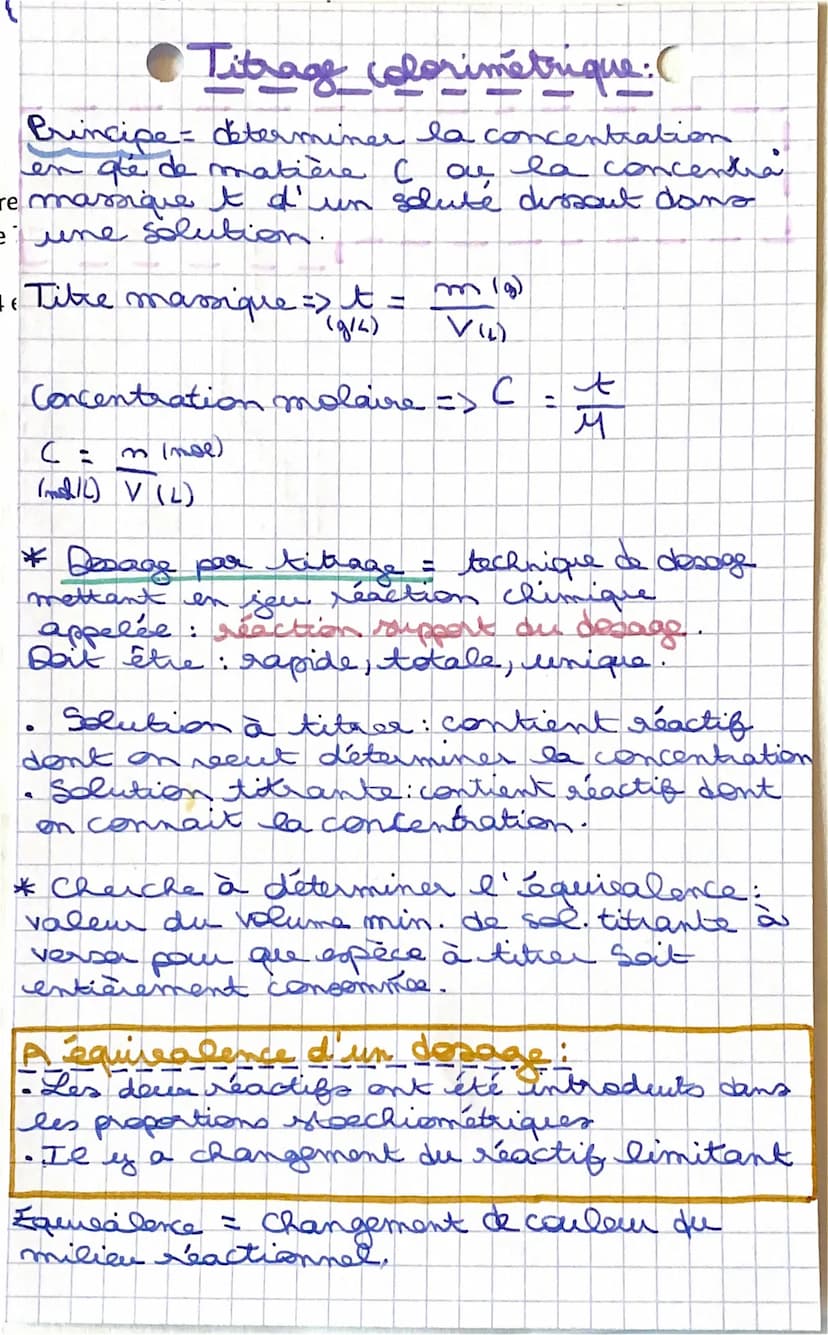 Titrage colorimétrique :
Principe = déterminer la concentration
en qté de matière C ou la concentra°
massique t d'un soluté dissout dans
une solution.
Titre massique => t = m (g)
(g/L) V (L)
Concentration molaire => C = t
M
C = n (mol)
(mol/L) V (L)
* Dosage par titrage = technique de dosage
mettant en jeu réaction chimique
appelée : réaction support du dosage.
Doit être : rapide, totale, unique.
• Solution à titrer : contient réactif
dont on veut déterminer la concentration
• Solution titrante : contient réactif dont
on connait la concentration.
* Cherche à déterminer l'équivalence :
valeur du volume min. de sol. titrante à
verser pour que espèce à titrer soit
entièrement consommée.
A équivalence d'un dosage :
• Les deux réactifs ont été introduits dans
les proportions stoechiométriques
• Il y a changement du réactif limitant
Équivalence = changement de couleur du
milieu réactionnel.